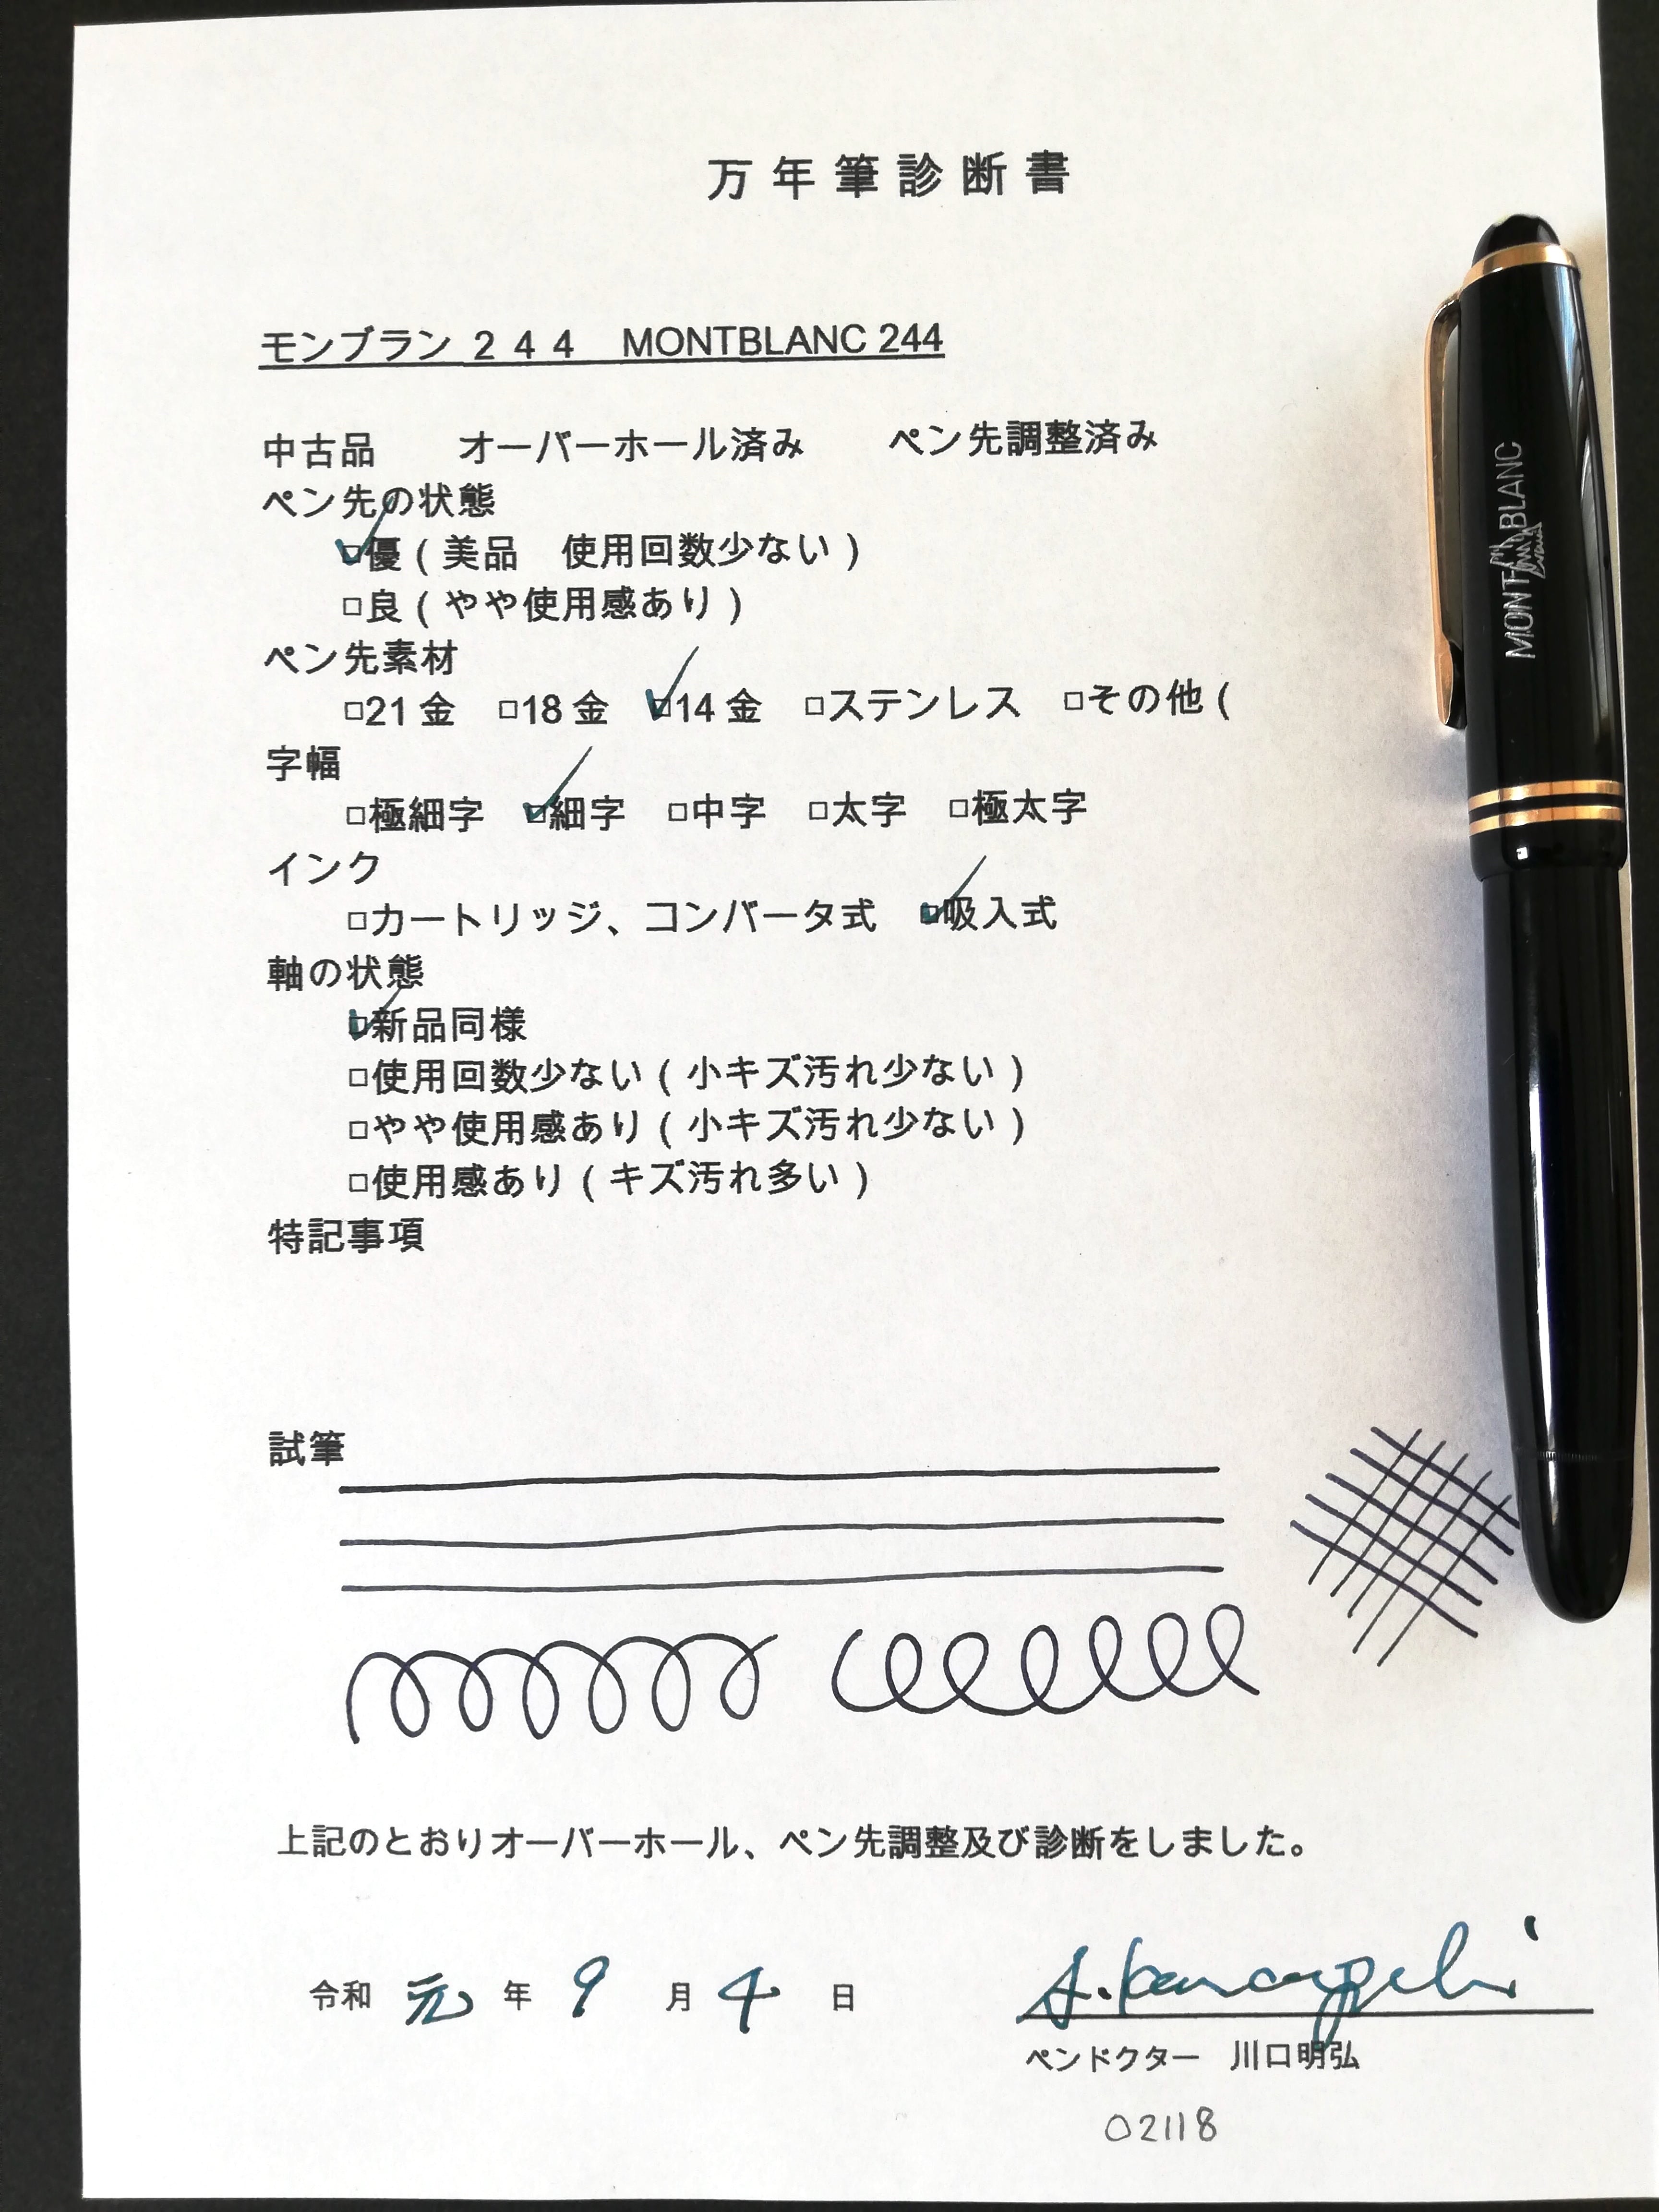 万年筆診断書
モンブラン 244　MONTBLANC 244
中古品　オーバーホール済み　ペン先調整済み
ペン先の状態
☑優（美品　使用回数少ない）
□良（やや使用感あり）
ペン先素材
□21金　□18金　☑14金　□ステンレス　□その他（
字幅
□極細字　☑細字　□中字　□太字　□極太字
インク
□カートリッジ、コンバータ式　☑吸入式
軸の状態
☑新品同様
□使用回数少ない（小キズ汚れ少ない）
□やや使用感あり（小キズ汚れ少ない）
□使用感あり（キズ汚れ多い）
特記事項
試筆
上記のとおりオーバーホール、ペン先調整及び診断をしました。
令和 元 年 9 月 4 日
ペンドクター　川口明弘
02118
MONTBLANC